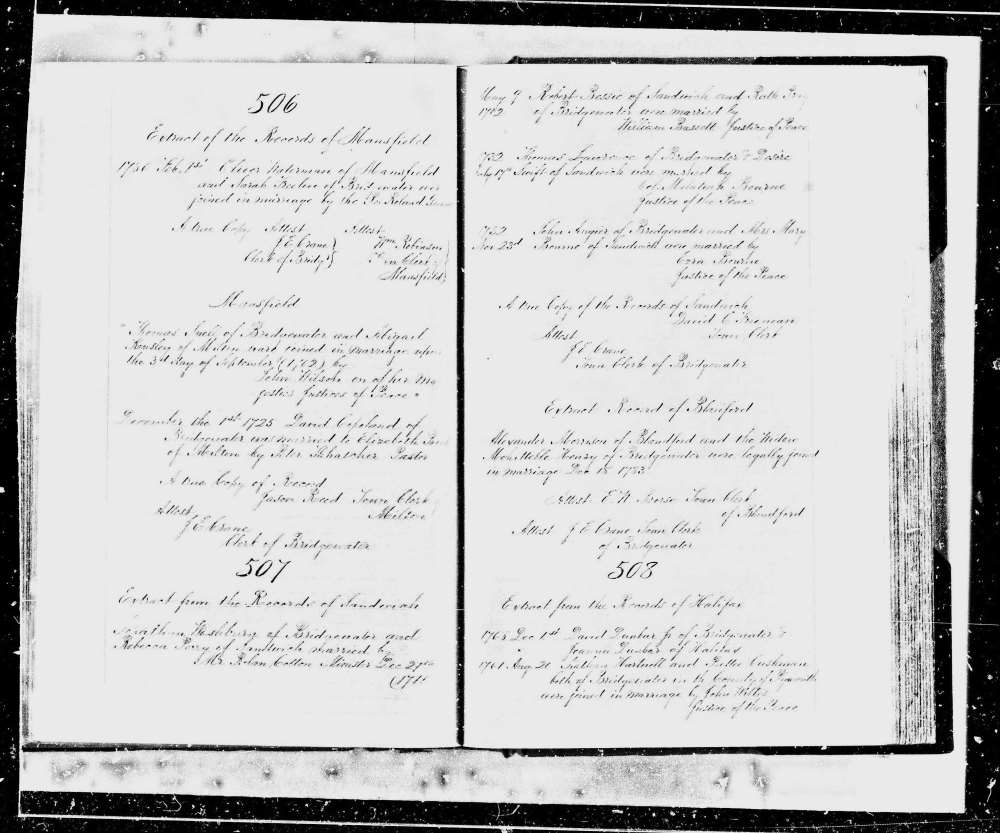 506
Extract of the Records of Mansfield
1736 Feb. 1st Oliver Waterman of Mansfield
and Sarah of Bridgwater wer
joined in marriage by the
A true Copy Attest Attest
J E Crane Wm Robinson
Clerk of Bridg. Clerk
Mansfield
Mansfield
Thomas of Bridgewater and Abigail
of Milton were joined in marriage upon
the 3rd day of September (1762) by
John Wilson on of her Ma
jesties Justices of Peace
December the 1st 1725 David Copeland of
Bridgewater was married to Elizabeth
of Milton by Peter Thatcher Pastor
A true Copy of Record
Jason Reed Town Clerk
Attest Milton
J E Crane
Clerk of Bridgewater
507
Extract from the Records of Sandwich
Jonathan Washburn of Bridgewater and
Rebecca Perry of Sandwich married by
Mr. Cotton Minister Dec
May 9 Robert Bessee of Sandwich and Ruth
of Bridgewater were married by
William Bassett Justice of Peace
1732 Thomas Lawrence of Bridgewater & Desire
July 17th Swift of Sandwich were married by
Col. Melatiah Bourne
Justice of the Peace
John Angier of Bridgewater and Mrs Mary
Nov 23d Bourne of Sandwich were married by
Ezra Bourne
Justice of the Peace
A true Copy of the Records of Sandwich
David C Freeman
Attest Town Clerk
J E Crane
Town Clerk of Bridgewater
Extract Record of Blanford
Alexander Morrison of Blandford and the Widow
Henry of Bridgewater were legally joined
in marriage Dec
Attest E W Town Clerk
of Blandford
Attest J E Crane Town Clerk
of Bridgewater
508
Extract from the Records of Halifax
Dec 1st David Dunbar Jr of Bridgewater &
Joanna Dunbar of Halifax
1761 Aug 20 Nathan Hartwell and Cushman
both of Bridgewater in the County of Plymouth
were joined in marriage by John
Justice of the Peace